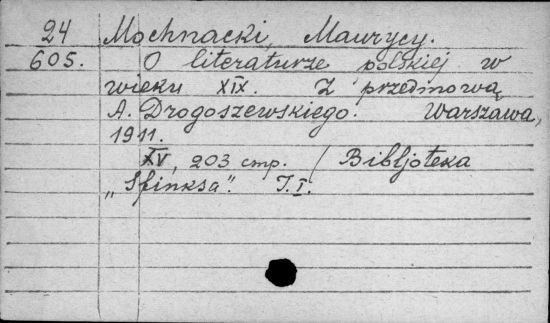 24 Mochnacki, Maurycy.
605. O literaturze polskiej w
wieku XIX. Z przedmową
A. Drogoszewskiego. Warszawa,
1911.
XV, 203 стр. / Bibljoteka
„Sfinksa". T.I.